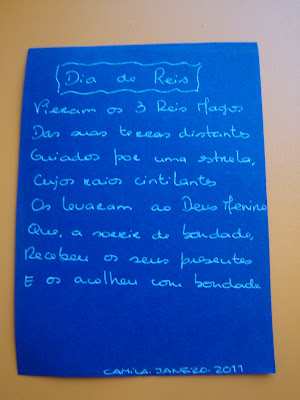 Dia de Reis
Vieram os 3 Reis Magos
Das suas terras distantes
Guiados por uma estrela,
Cujos raios cintilantes
Os levaram ao Deus Menino
Que, a sorrir de bondade,
Recebeu os seus presentes
E os acolheu com bondade
CAMILA. JANEIRO. 2011